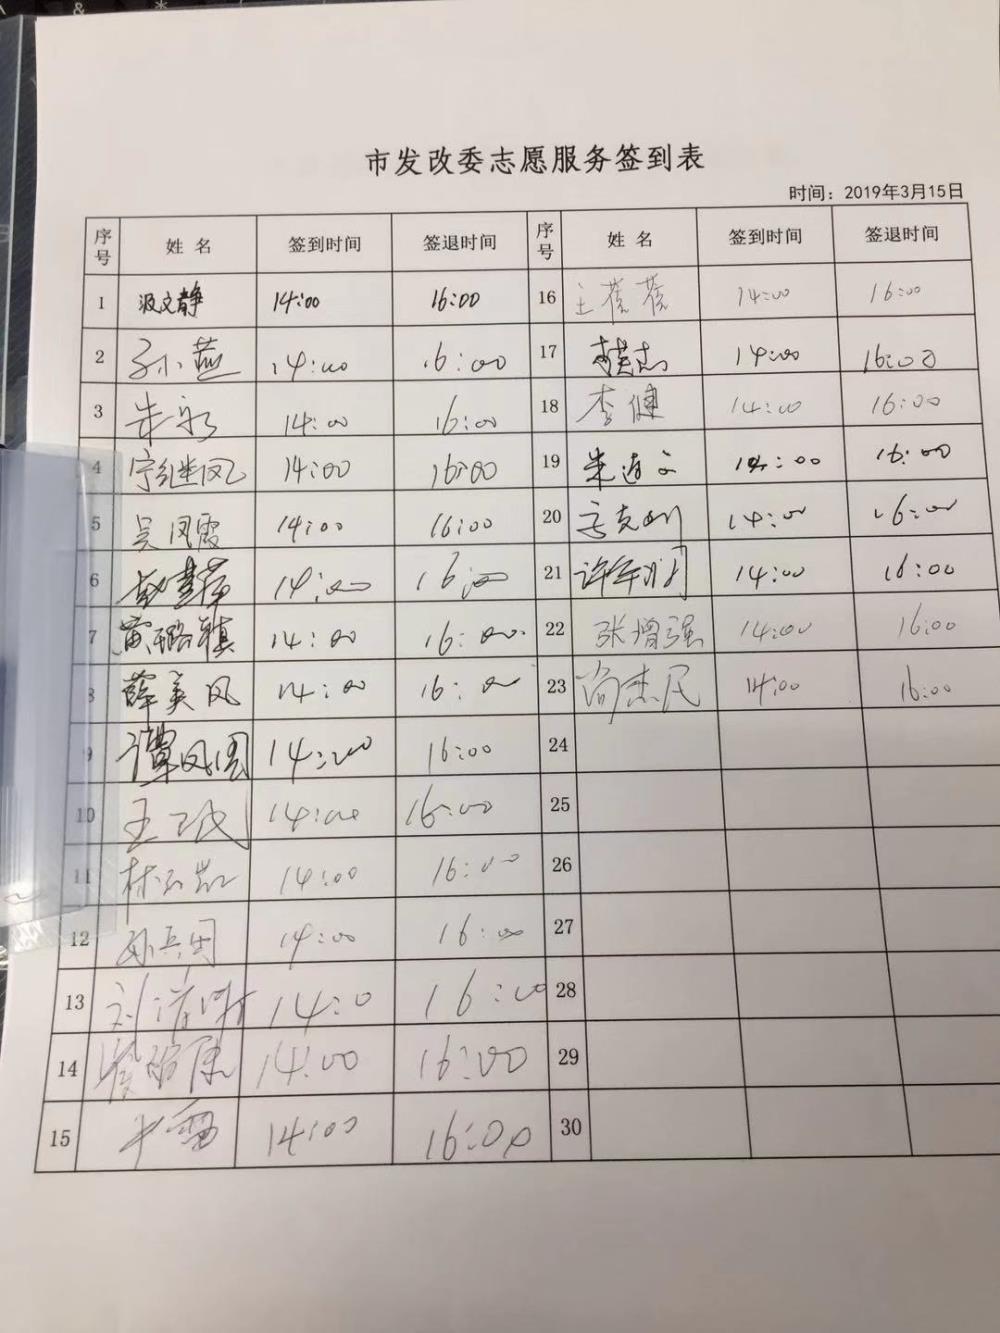 市发改委志愿服务签到表
时间：2019年3月15日
序号 姓 名 签到时间 签退时间 序号 姓 名 签到时间 签退时间
1 汲文静 14:00 16:00 16 王蓓蓓 14:00 16:00
2 孙小燕 14:00 16:00 17 14:00 16:00
3 朱永 14:00 16:00 18 李健 14:00 16:00
4 宁继凤 14:00 16:00 19 朱 14:00 16:00
5 吴凤霞 14:00 16:00 20 14:00 16:00
6 赵慧萍 14:00 16:00 21 许 14:00 16:00
7 黄璐镇 14:00 16:00 22 张增强 14:00 16:00
8 薛美凤 14:00 16:00 23 尚杰民 14:00 16:00
9 谭凤国 14:00 16:00 24
10 王 14:00 16:00 25
11 林 凯 14:00 16:00 26
12 孙兵团 14:00 16:00 27
13 刘 14:0 16:00 28
14 14:00 16:00 29
15 雷 14:00 16:00 30